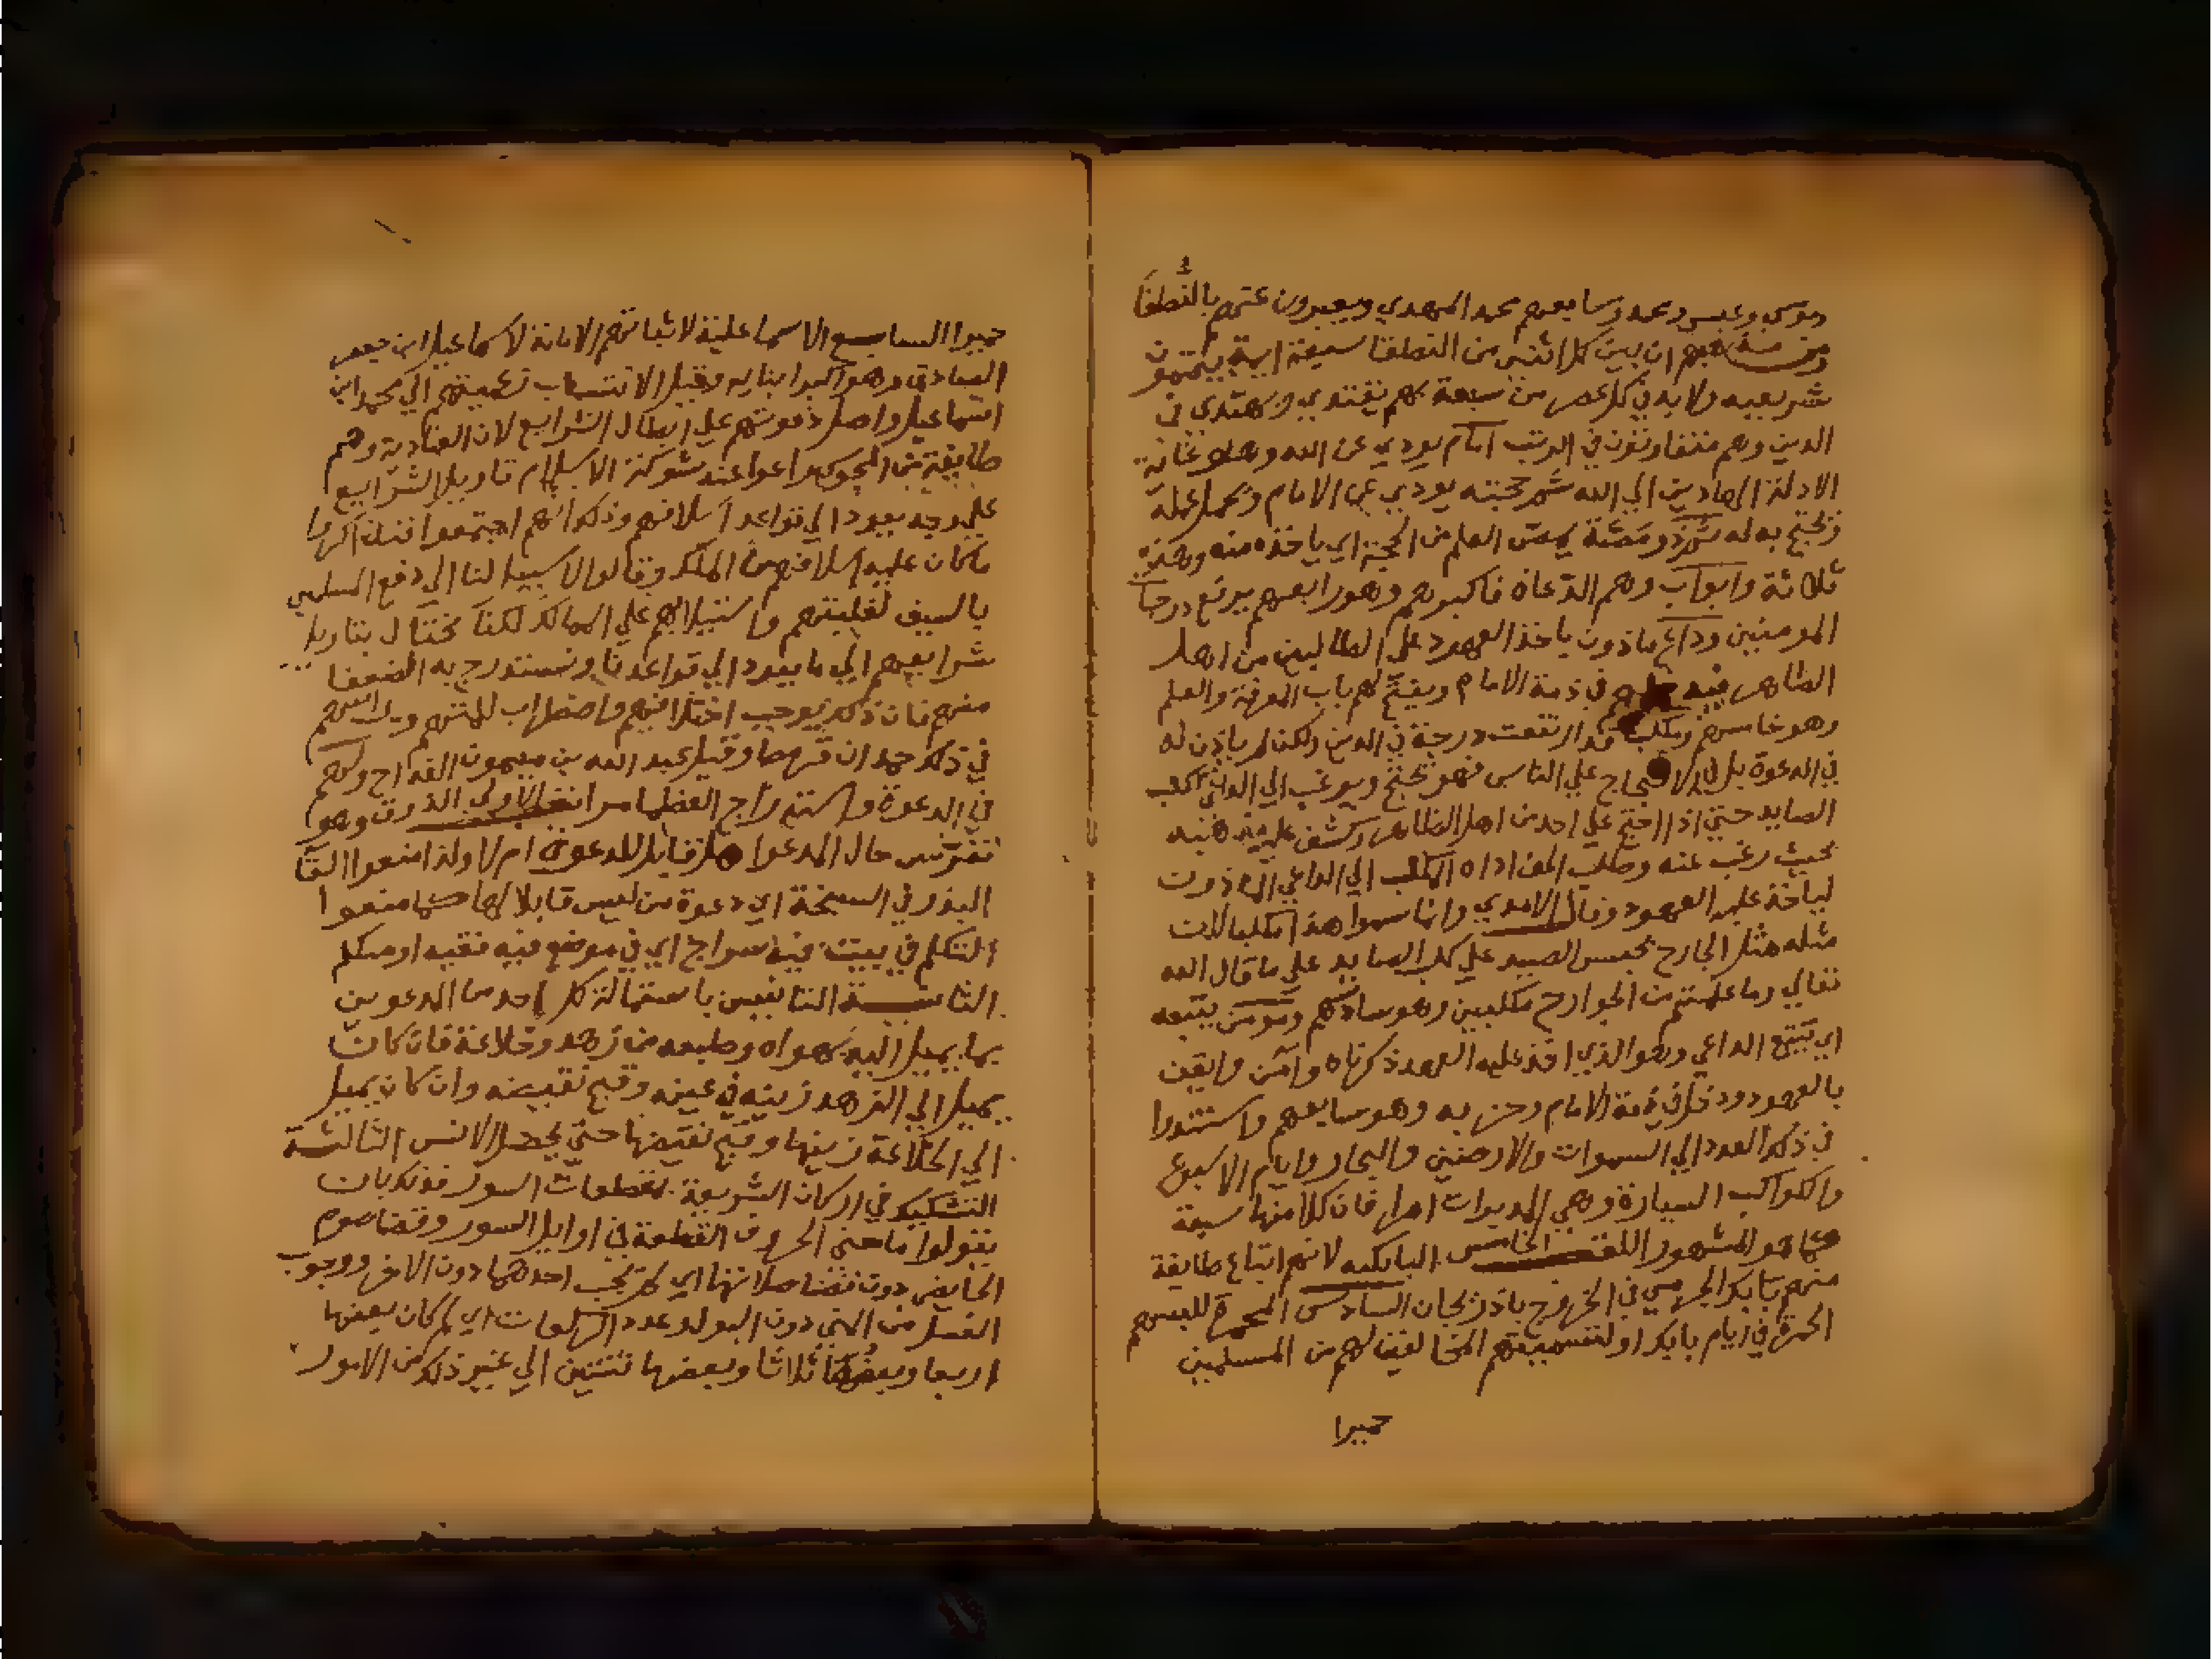 وموسي وعيسي ومحمد وسابعهم محمد المهدي ويعبرون عنهم بالنطقا
ومن مذهبهم ان بين كل اثنين من النطقا سبعة ايمة يتممون
شريعته ولا بد في كل عصر من سبعة بهم يقتدي وبهم يهتدي في
الدين وهم متفاوتون في الرتب امام يودي عن الله وهو غاية
الادلة الهادين الي الله ثم حجته يودي عن الامام وتحمل علمه
وتحتج به له ثم ذو مصة يمص العلم من الحجة اي ياخذه منه وهذه
ثلاثة وابواب وهم الدعاة فاكبرهم وهو رابعهم يرفع درجات
المومنين وداع ماذون ياخذ العهود علي الطالبين من اهل
الظاهر فيدخلهم في ذمة الامام ويفتح لهم باب المعرفة والعلم
وهو خامسهم ومكلب قد ارتفعت درجته في الدين ولكن لم ياذن له
في الدعوة بل في الاحتجاج علي الناس فهو يحتج ويرغب الي الداعي ككلب
الصايد حتي اذا احتج علي احد من اهل الظاهر وكسر عليه مذهبه
بحيث رغب عنه وطلب الحق اداه المكلب الي الداعي الماذون
لياخذ عليه العهود وقال الامدي وانما سموا هذا مكلبا لان
مثله مثل الجارح يحبس الصيد علي كلب الصايد علي ما قال الله
تعالي وما علمتم من الجوارح مكلبين وهو سادسهم ومومن يتبعه
اي يتبع الداعي وهو الذي اخذ عليه العهد ذكرناه وامن وايقن
بالعهود ودخل في ذمة الامام وحزبه وهو سابعهم واستندوا
في ذكر العدد الي السموات والارضين والبحار وايام الاسبوع
والكواكب السيارة وهي المدبرات امرا فان كلا منها سبعة
كما هو المشهور اللقب الخامس البابكيه لانهم اتباع طايفة
منهم بابك الخرمي في الخروج باذربيجان السادس المحمرة للبسهم
الحمرة في ايام بابك او لتسميتهم المخالفين لهم من المسلمين
حميرا
حميرا السابع الاسماعيلية لاثباتهم الامامة لاسماعيل ابن جعفر
الصادق وهو اكبر ابنايه وقيل لانتساب زعيمهم الي محمد ابن
اسماعيل واصل دعوتهم علي ابطال الشرايع لان الغبارية وهم
طايفة من المجوس راعوا عند شوكة الاسلام تاويل الشرايع
علي وجه يعود الي قواعد اسلافهم وذلك انهم اجتمعوا فتذاكروا
ما كان عليه اسلافهم من الملك وقالوا لا سبيل لنا الي دفع المسلمين
بالسيف لغلبتهم واستيلايهم علي الممالك لكنا نحتال بتاويل
شرايعهم الي ما يعود الي قواعدنا ونستدرج به الضعفا
منهم فان ذلك يوجب اختلافهم واضطراب كلمتهم وراسهم
في ذلك حمدان قرمط وقيل عبد الله بن ميمون القداح ولهم
في الدعوة واستدراج الضعفا مراتب الاولي الذرق وهو
تفرس حال المدعوا هل قابل للدعوة ام لا ولذا منعوا القا
البذر في السبخة اي دعوة من ليس قابلا لها كما منعوا
التكلم في بيت فيه سراج اي في موضع فيه فقيه او متكلم
الثانية التانيس باستمالة كل احد من المدعوين
بما يميل اليه بهواه وطبعه من زهد وخلاعة فان كان
يميل الي الزهد زينه في عينه وقبح نقيضه وان كان يميل
الي الخلاعة زينها وقبح نقيضها حتي يحصل الانس الثالثة
التشكيك في اركان الشريعة بمقطعات السور فذلك بان
يقولوا ما معني الحروف المقطعة في اوايل السور وقضا صوم
الحايض دون قضا صلاتها اي لم يجب احدهما دون الاخر ووجوب
الغسل من المني دون البول وعدد الركعات اي لم كان بعضها
اربعا وبعضها ثلاثا وبعضها ثنتين الي غير ذلك من الامور